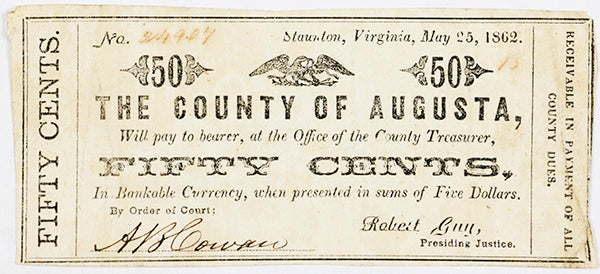 FIFTY CENTS.
No. 24907
Staunton, Virginia, May 25, 1862.
50
50
15
THE COUNTY OF AUGUSTA,
Will pay to bearer, at the Office of the County Treasurer,
FIFTY CENTS.
In Bankable Currency, when presented in sums of Five Dollars.
By Order of Court;
Robert Guy,
Presiding Justice.
RECEIVABLE IN PAYMENT OF ALL
COUNTY DUES.